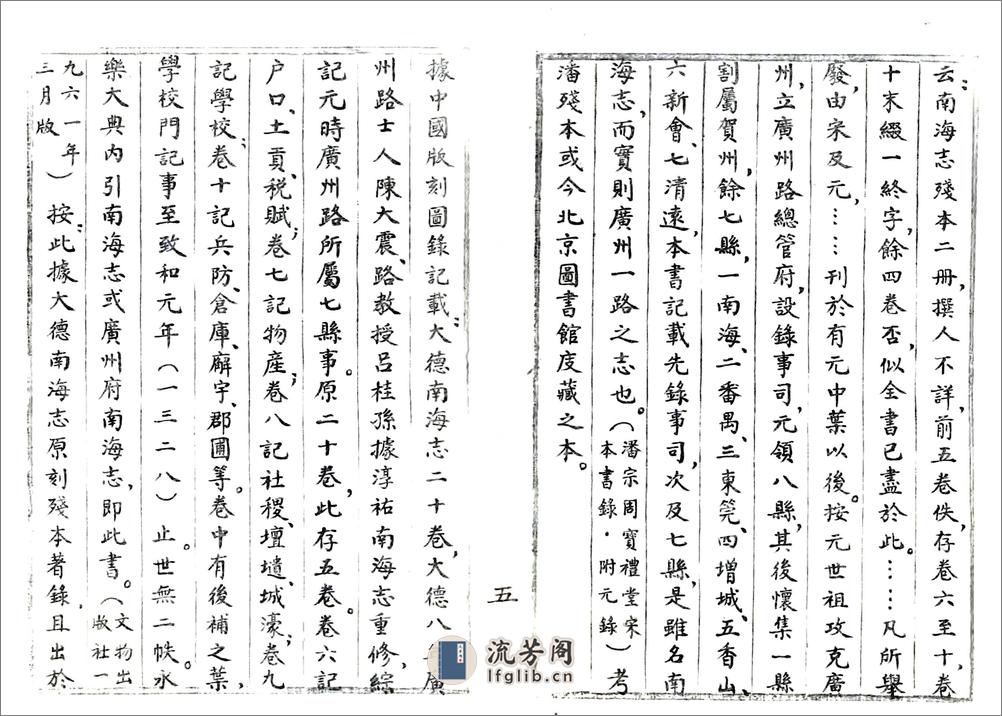 云:南海志殘本二册,撰人不詳,前五卷佚,存卷六至十,卷
十末綴一終字,餘四卷否,似全書已盡於此。……凡所舉
廢,由宋及元,……刊於有元中葉以後。按元世祖攻克廣
州,立廣州路總管府,設錄事司,元領八縣,其後懷集一縣
割屬賀州,餘七縣,一南海、二番禺、三東筦、四增城、五香山、
六新會、七清遠,本書記載先錄事司,次及七縣,是雖名南
海志,而實則廣州一路之志也。(潘宗周寶禮堂宋
本書錄·附元錄)考
潘殘本或今北京圖書館庋藏之本。
五
據中國版刻圖錄記載:大德南海志二十卷,大德八
廣
州路士人陳大震、路教授呂桂孫據淳祐南海志重修,綜
記元時廣州路所屬七縣事。原二十卷,此存五卷。卷六記
户口、土貢、税賦;卷七記物産;卷八記社稷、壇壝、城濠;卷九
記學校;卷十記兵防、倉庫、廨宇、郡圃等。卷中有後補之葉,
學校門記事至致和元年(一三二八)止。世無二帙。永
樂大典内引南海志或廣州府南海志,即此書。(文物出
版社一
九六一年
三月版)按:此據大德南海志原刻殘本著錄,且出於
流芳阁
lfglib.cn